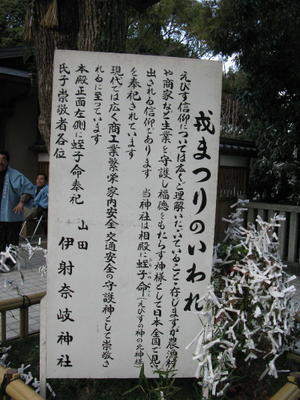 戎まつりのいわれ
えびす信仰については広くご理解いただいていることと存じますが農漁村
や商家など生業を守護し福徳をもたらす神様として日本全国で見
出される信仰であります 当神社は相殿に蛭子命(えびすの神の元神様)
を奉祀されています
現代では広く商工業繁栄家内安全交通安全の守護神として崇敬さ
れるに至っています
本殿正面左側に蛭子命奉祀
山田 伊射奈岐神社
氏子崇敬者各位